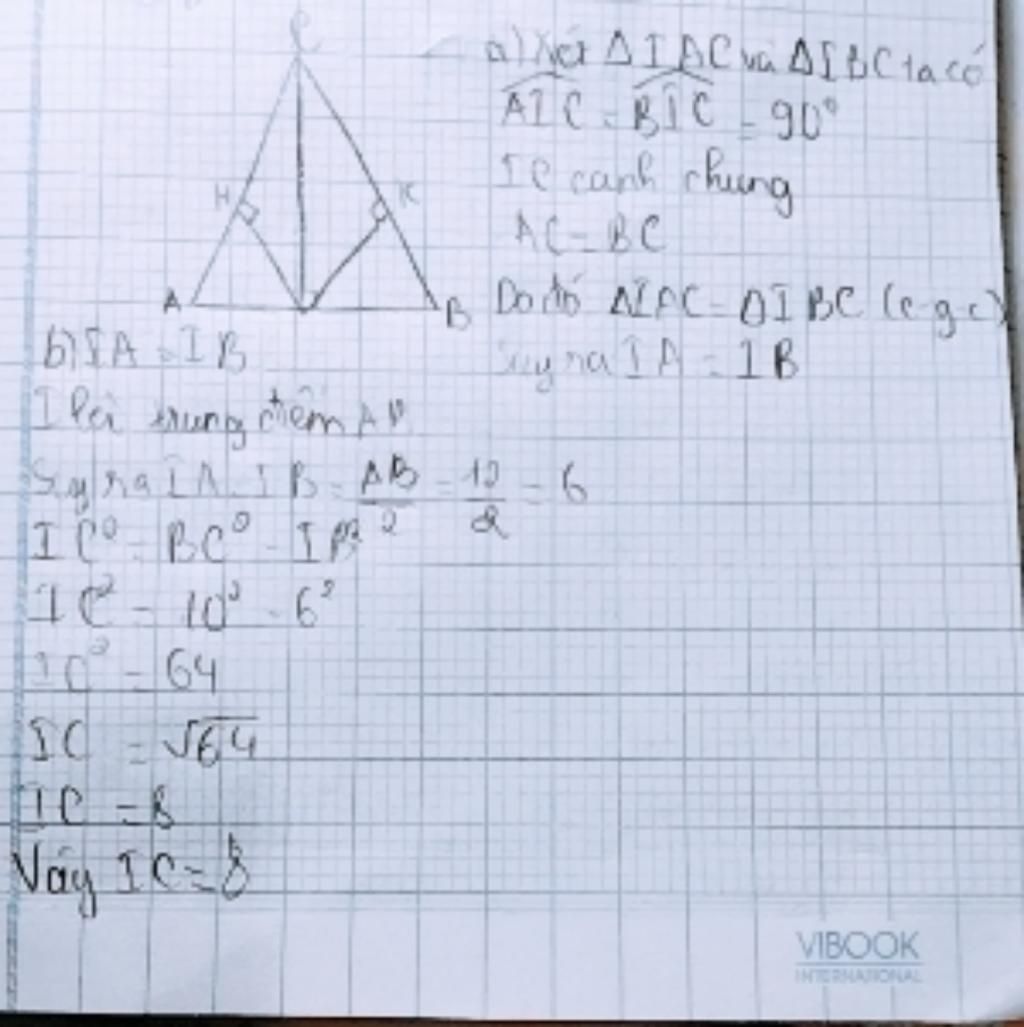 C
H
K
A
B
a) Xét ΔIAC và ΔIBC ta có
AIC = BIC = 90°
IC cạnh chung
AC = BC
Do đó ΔIAC = ΔIBC (c-g-c)
Suy ra IA = IB
b) IA = IB
I là trung điểm AB
Suy ra IA = IB = AB/2 = 12/2 = 6
IC² = BC² - IB²
IC² = 10² - 6²
IC² = 64
IC = √64
IC = 8
Vậy IC = 8
VIBOOK
INTERNATIONAL